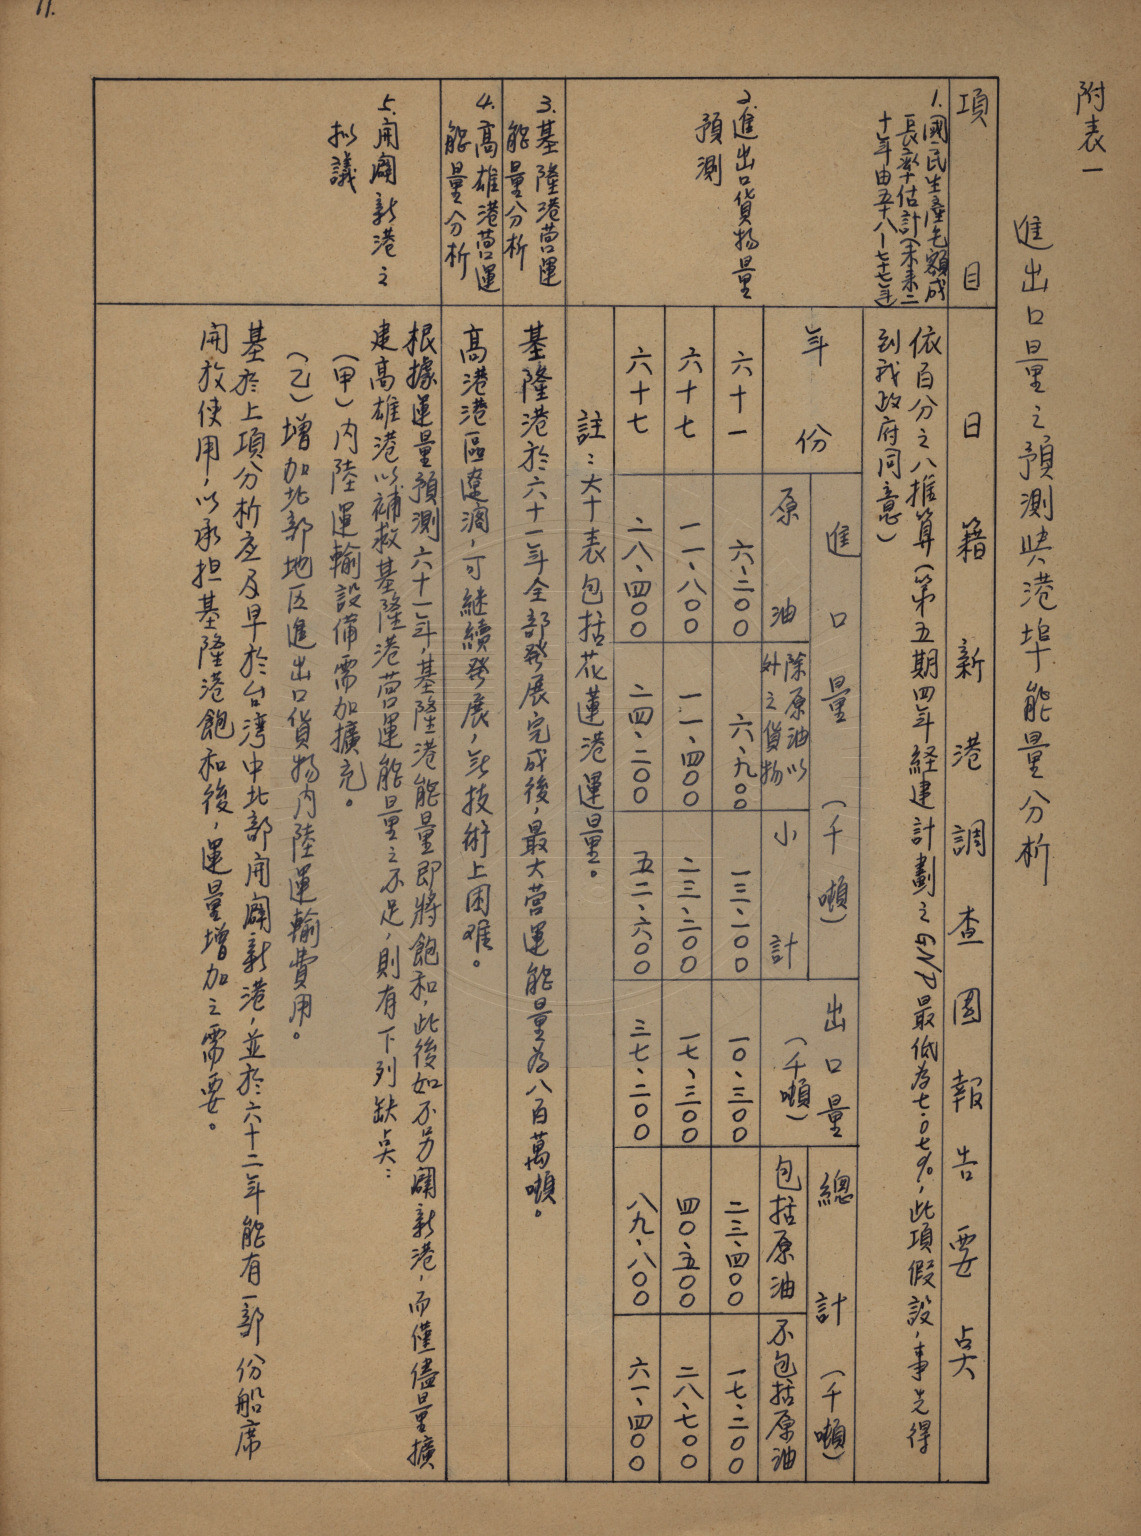 11.
附表一
進出口量之預測與港埠能量分析
項目
日籍新港調查團報告要点
1.國民生產毛額成
長率估計(未來二
十年由五十八—七十七年)
依百分之八推算(第五期四年経建計劃之GNP最低為七.〇七%,此項假設,事先得
到我政府同意)
2.進出口貨物量
預測
年份
進口量(千噸)
出口量
(千噸)
總計(千噸)
原油
除原油以
外之貨物
小計
包括原油
不包括原油
六十一 六、二〇〇 六、九〇〇 一三、一〇〇 一〇、三〇〇 二三、四〇〇 一七、二〇〇
六十七 一一、八〇〇 一一、四〇〇 二三、二〇〇 一七、三〇〇 四〇、五〇〇 二八、七〇〇
六十七 二八、四〇〇 二四、二〇〇 五二、六〇〇 三七、二〇〇 八九、八〇〇 六一、四〇〇
註:本表包括花蓮港運量。
3.基隆港营運
能量分析
基隆港於六十一年全部發展完成後,最大营運能量為八百萬噸。
4.高雄港营運
能量分析
高港港區遼濶,可継續發展,無技術上困难。
5.開闢新港之
拟議
根據運量預測六十一年,基隆港能量即將飽和,此後如不另闢新港,而僅儘量擴
建高雄港以補救基隆港营運能量之不足,則有下列缺点:
(甲)內陸運輸設備需加擴充。
(乙)增加北部地区進出口貨物內陸運輸費用。
基於上項分析应及早於台湾中北部開闢新港,並於六十二年能有一部份船席
開放使用,以承担基隆港飽和後,運量增加之需要。